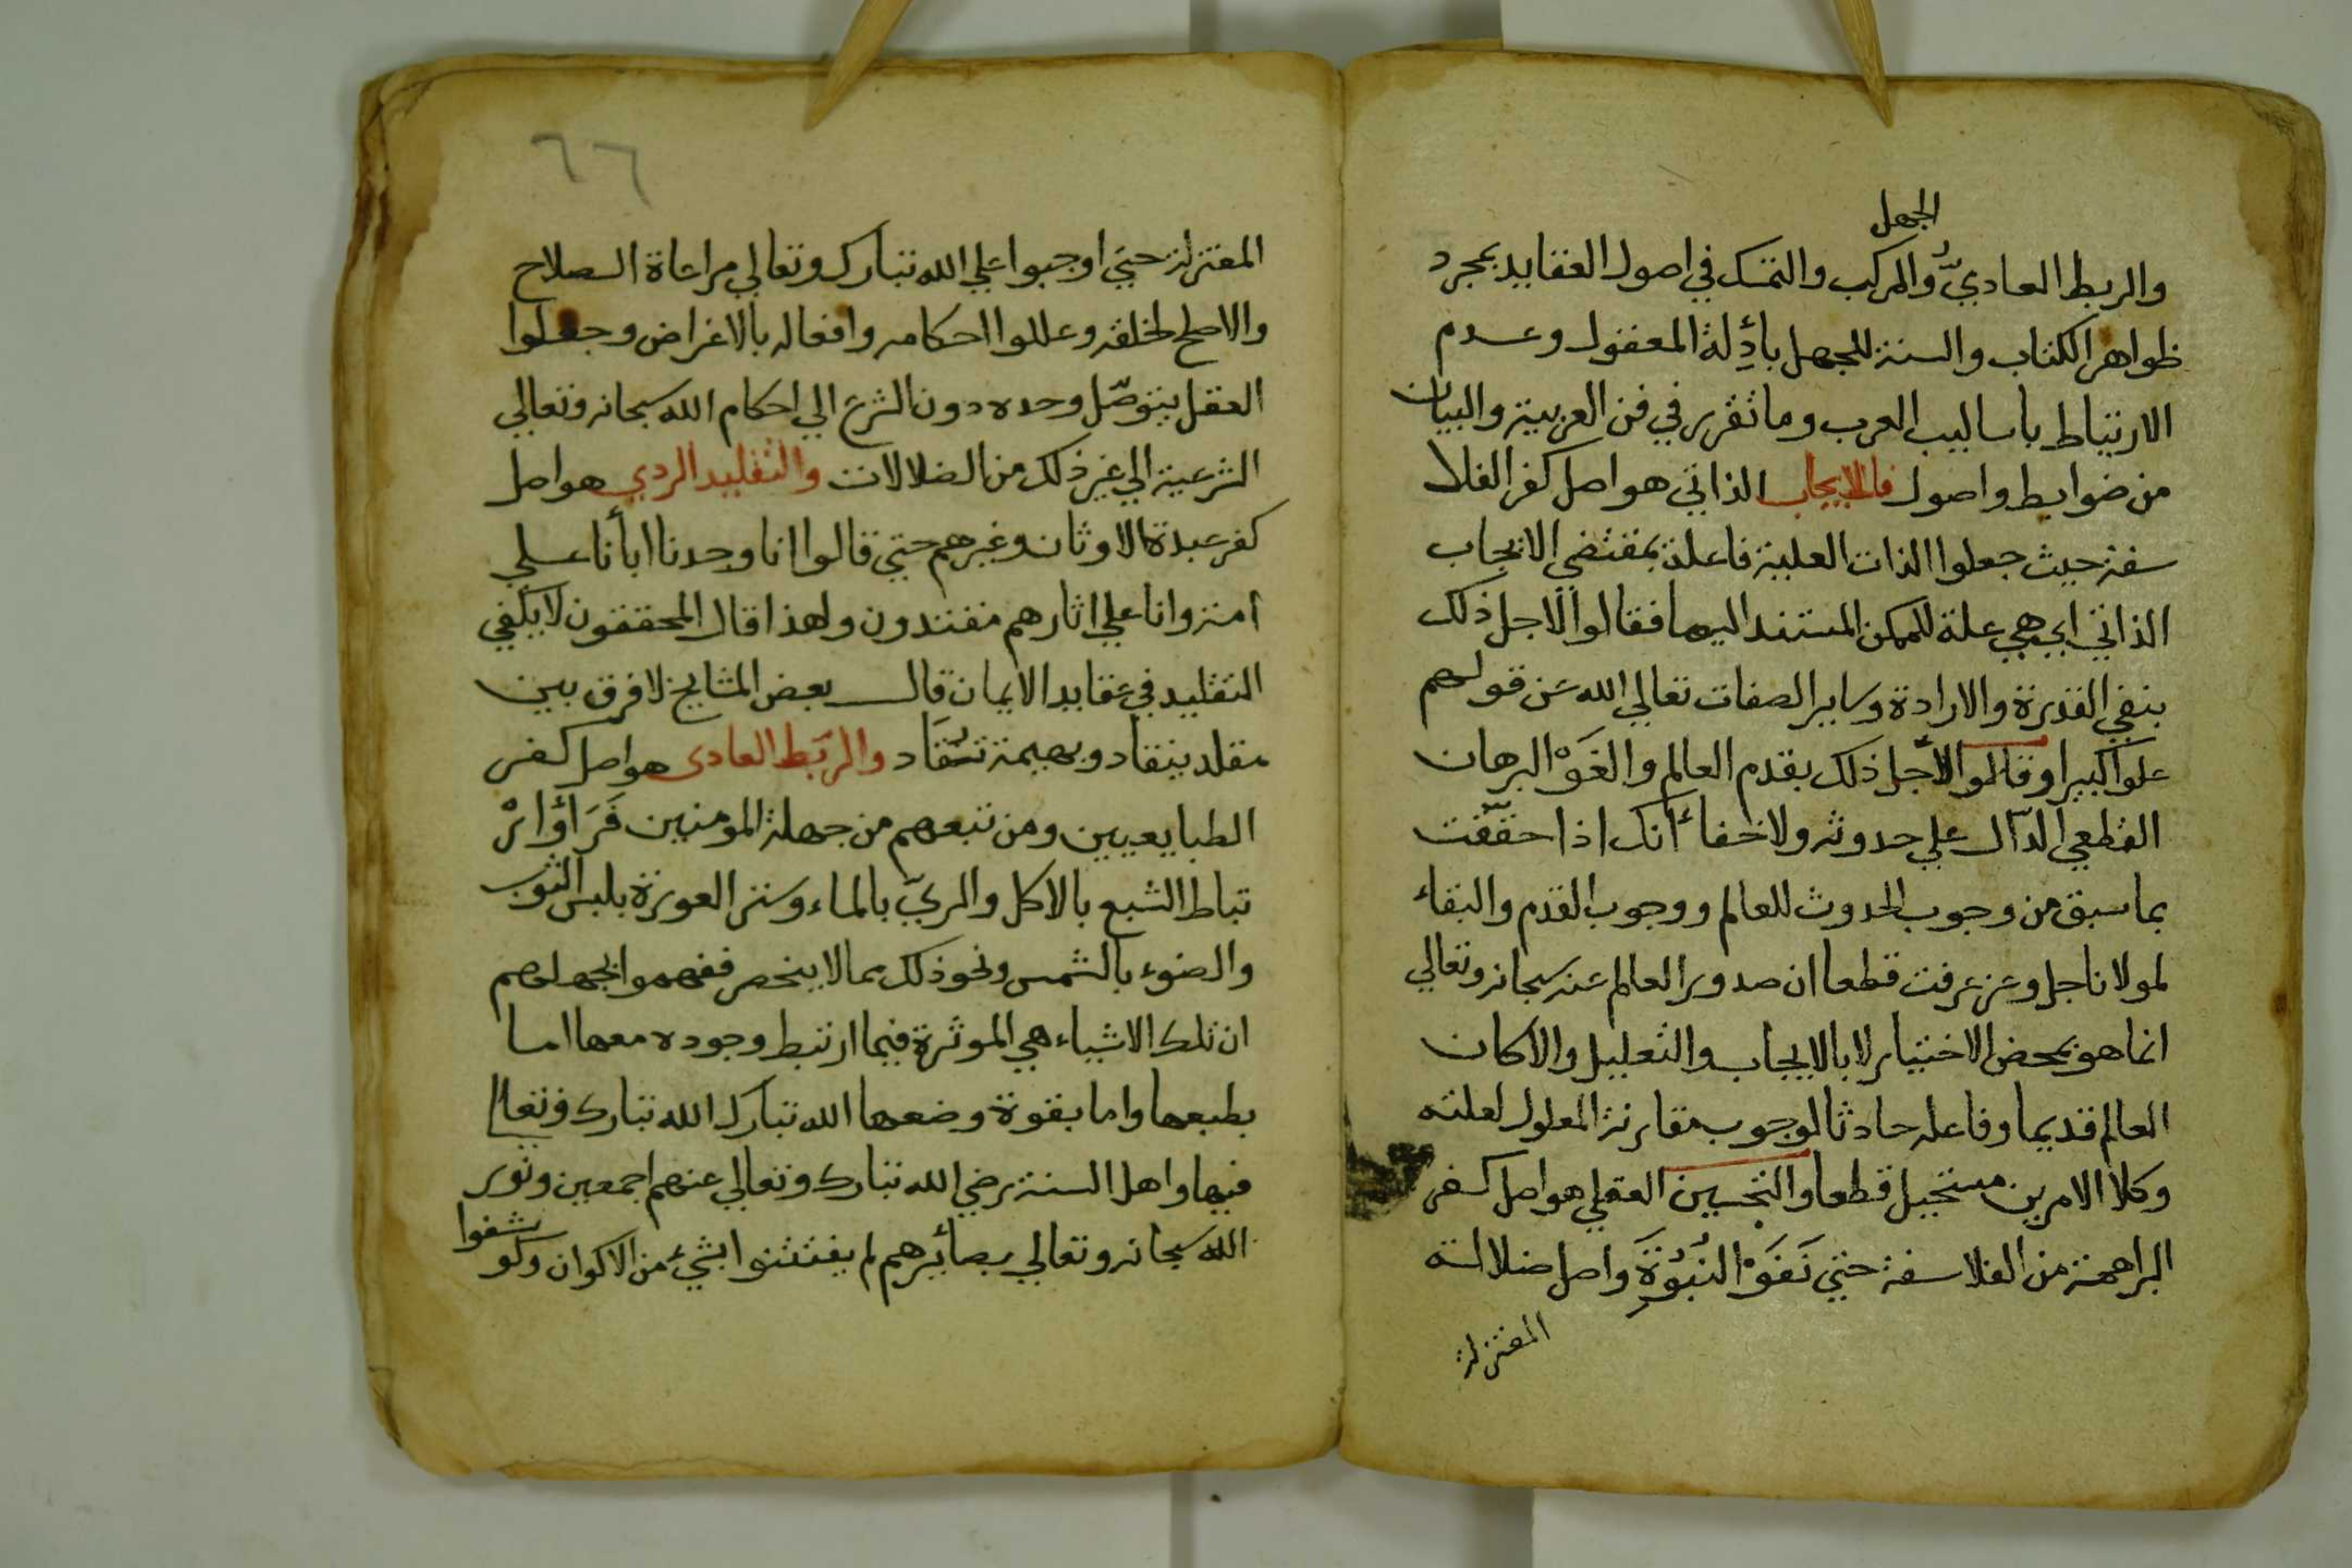 الجهل
والربط العاديُّ والمركب والتمسك في اصول العقايد بمجرد
ظواهر الكتاب والسنة للجهل بأدِلة المعقول وعدم
الارتباط باساليب العرب وما تقرر في فن العربية والبيان
من ضوابط واصول فالايجاب الذاتي هو اصل كفر الفلا
سفة حيث جعلوا الذات العلية فاعلة بمقتضي الايجاب
الذاتي اي هي علة للممكن المستند اليها فقالوا لاجل ذلك
بنفي القدرة والارادة وساير الصفات تعالي الله عن قولهم
علوا كبيرا وقالوا لأجل ذلك بقدم العالم والغَوْ البرهان
القطعي الدّال علي حدوثه ولا خفاءَ انك اذا حقّقت
بما سبق من وجوب الحدوث للعالم ووجوب القدم والبقاء
لمولانا جل وعز عرفت قطعا ان صدور العالم عنه سبحانه وتعالي
انما هو بمحض الاختيار لا بالايجاب والتعليل والا كان
العالم قديما وفاعله حادثا لوجوب مقارنة المعلول لعلته
وكلا الامرين مستحيل قطعا والتحسين العقلي هو اصل كفر
البراهمة من الفلاسفة حتي نَفَوْا النُبُوَّةَ واصل ضلالة
المعتزلة
٦٦
المعتزلة حتي اوجبوا علي الله تبارك وتعالي مراعاة الصلاح
والاصلح لخلقه وعللوا احكامه وافعاله بالاغراض وجعلوا
العقل يتوصّل وحده دون الشرع الي احكام الله سبحانه وتعالي
الشرعية الي غير ذلك من الضلالات والتقليد الردي هو اصل
كفر عبدة الاوثان وغيرهم حتي قالوا انا وجدنا ابأنا علي
امة وانا علي اثارهم مقتدون ولهذا قال المحققون لا يكفي
التقليد في عقايد الايمان قال بعض المشايخ لا فرق بين
مقلد ينقاد وبهيمة تُقَاد والربَط العادى هو اصل كفر
الطبايعيين ومن تبعهم من جهلة المومنين فَرَأوْا ارْ
تباط الشبع بالاكل والريّ بالماء وستر العورة بلبس الثوب
والضوء بالشمس ونحو ذلك مما لا ينحصر ففهموا بجهلهم
ان تلك الاشياء هي الموثرة فيما ارتبط وجوده معها اما
بطبعها واما بقوة وضعها الله تبارك الله تبارك وتعالي
فيها واهل السنة رضي الله تبارك وتعالي عنهم اجمعين ونور
الله سبحانه وتعالي بصأيرهم لم يفتتنوا بشيءٍ من الاكوان وكو
شفوا